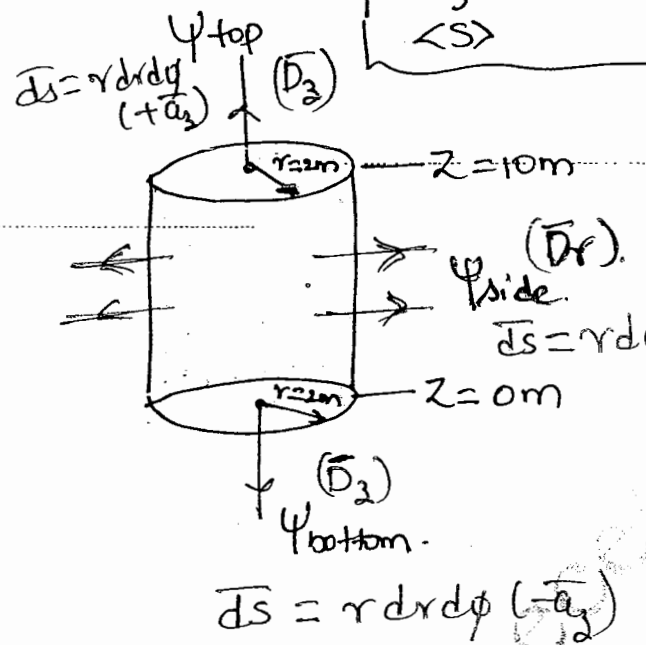 <S>
ψtop
d̅s̅ = rdrdφ
(+a̅z)
(D̅z)
r=2m
Z = 10m
(D̅r).
ψside.
d̅s̅ = rd
r=2m
Z = 0m
(D̅z)
ψbottom.
d̅s̅ = rdrdφ (-a̅z)